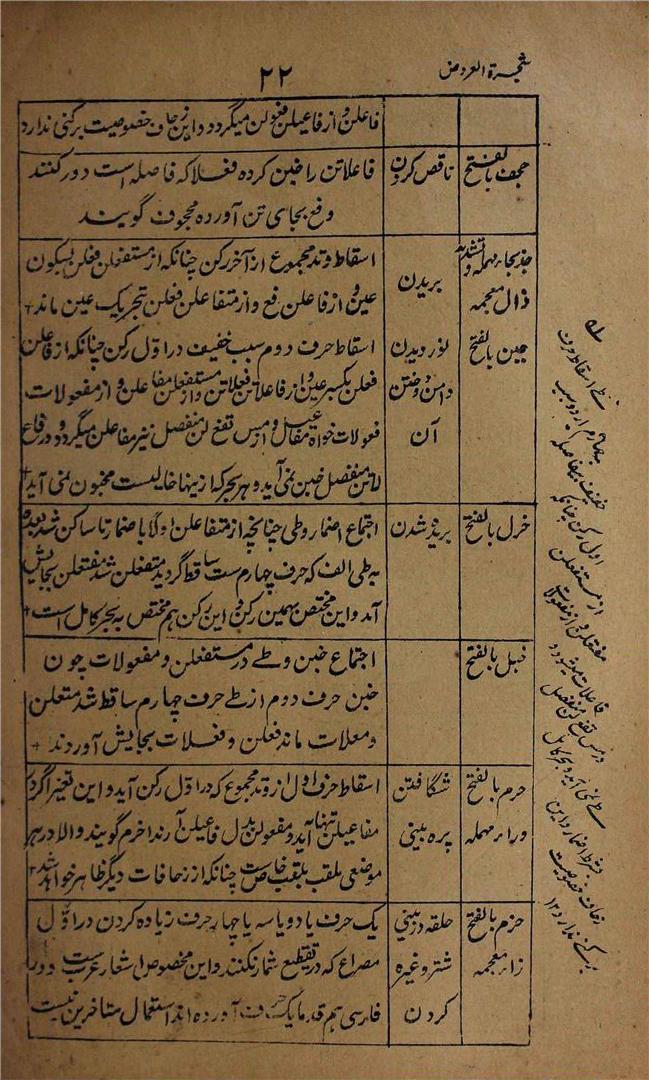 شجرة العروض
۲۲
فاعلن و از فاعیلن فعولن میگردد و این زحاف خصوصیت برکنی ندارد
جحف بالفتح
ناقص کردن
فاعلاتن را خبن کرده فعلا که فاصله است دور کنند
و فع بجای تن آورده مجحوف گویند
حذ بحاء مهمله و تشدید
ذال معجمه
بریدن
اسقاط وتد مجموع از آخر رکن چنانکه از مستفعلن فعلن بسکون
عین و از فاعلن فع و از متفاعلن فعلن بتحریک عین ماند
خبن بالفتح
نوردیدن
دامن و دوختن
آن
اسقاط حرف دوم سبب خفیف در اول رکن چنانکه از فاعلن
فعلن بکسر عین و از فاعلاتن فعلاتن و از مستفعلن مفاعلن و از مفعولات
فعولات خواه مفاعیل و از مس تفع لن منفصل نیز مفاعلن میگردد و در فاع
لاتن منفصل خبن نمی آید و هر بحر که ازینها خالیست مخبون نمی آید
خزل بالفتح
بریده شدن
اجتماع اضمار و طی چنانچه از متفاعلن اولا باضمار تا ساکن شد بعده
به طی الف که حرف چهارم ست ساقط گردید متفعلن شد مفتعلن بجایش
آمد و این مختص بهمین رکن و این رکن هم مختص به بحر کامل است
خبل بالفتح
اجتماع خبن و طے در مستفعلن و مفعولات چون
خبن حرف دوم از طے حرف چهارم ساقط شد متعلن
و معلات ماند فعلتن و فعلات بجایش آوردند
خرم بالفتح
و راء مهمله
شگافتن
پره بینی
اسقاط حرف اول از وتد مجموع که در اول رکن آید و این تغیر اگر در
مفاعیلن تنها آید و مفعولن بدل فاعیلن آرند اخرم گویند و الا در هر
موضعی ملقب بلقب خاص ست چنانکه از زحافات دیگر ظاهر خواهد شد
خزم بالفتح
زاء معجمه
حلقه در بینی
شتر و غیره
کردن
یک حرف یا دو یا سه یا چهار حرف زیاده کردن در اول
مصراع که در تقطیع شمار نکنند و این مخصوص اشعار عرب ست و در
فارسی هم قدما یک حرف آورده اند استعمال متاخرین نیست
طے اسقاط حرف
چهارم از دو سبب
خفیف
اول رکن چنانکه
از مستفعلن
مفتعلن و از مفعولات
فاعلات میشود و
در مس تفع لن منفصل
طے نمی آید و در بحر کامل
بشرط اضمار و این
زحاف خصوصیت
برکنے ندارد ۱۲